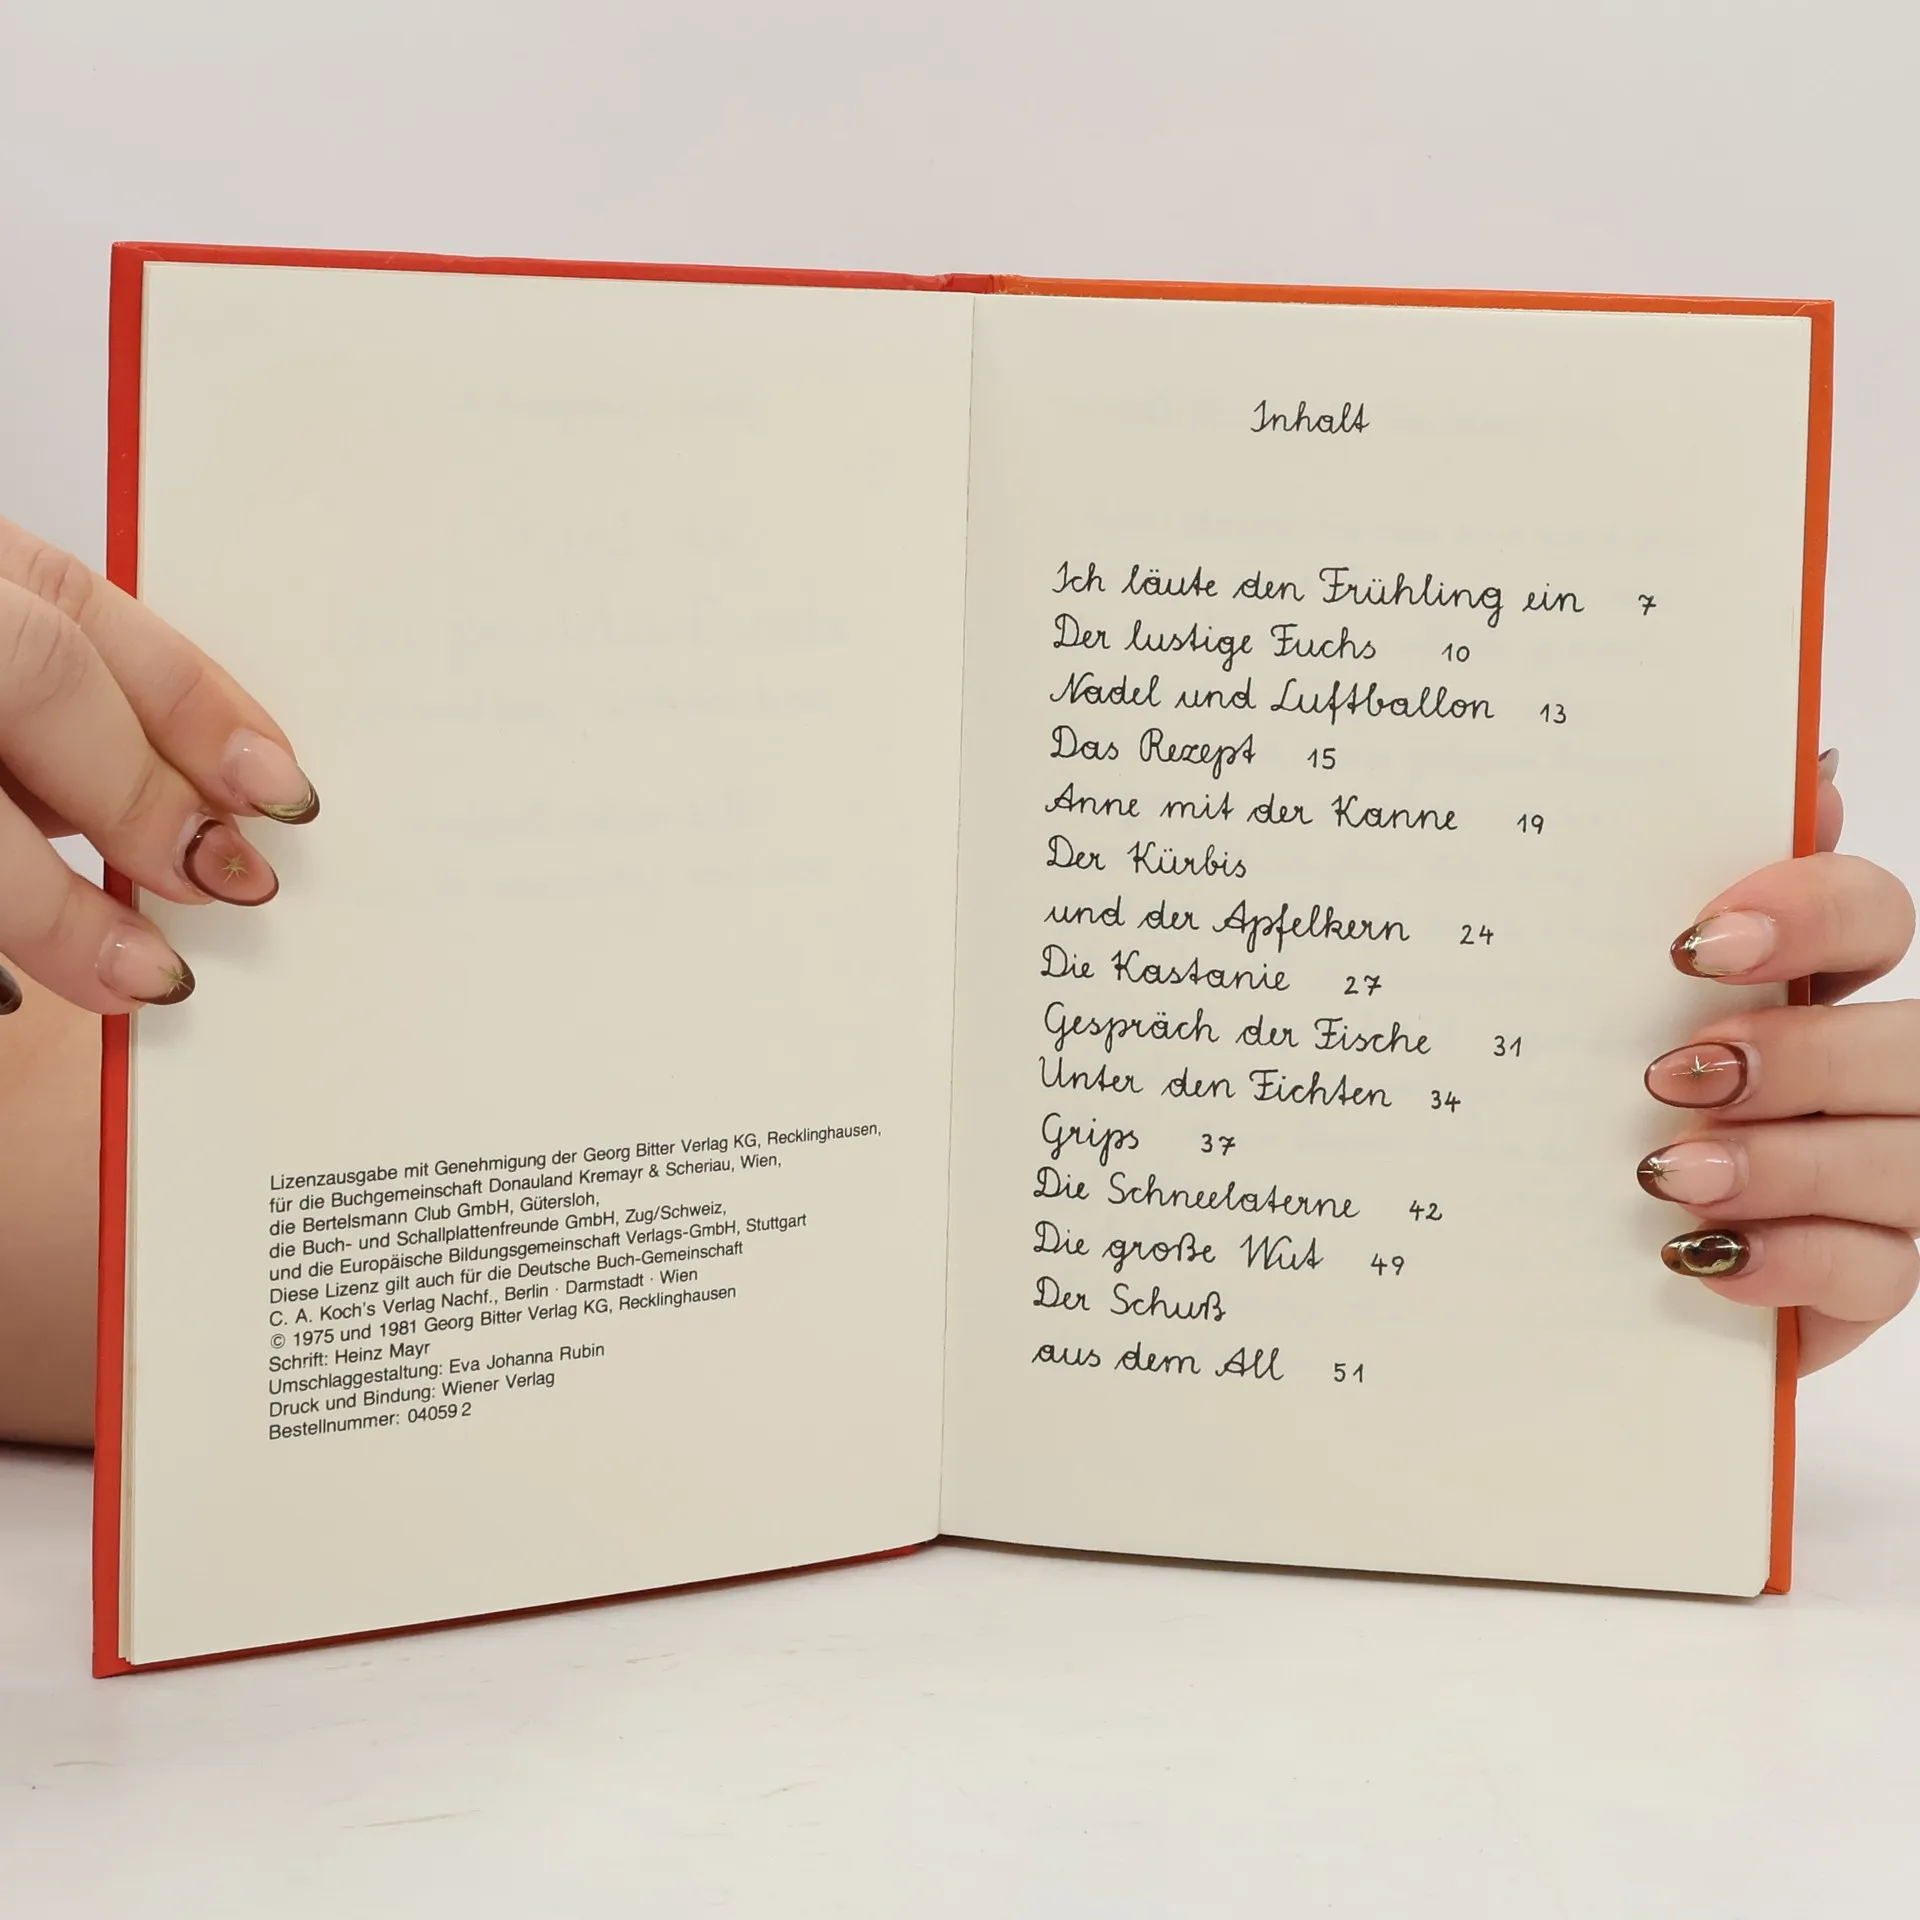 Lizenzausgabe mit Genehmigung der Georg Bitter Verlag KG, Recklinghausen,
für die Buchgemeinschaft Donauland Kremayr & Scheriau, Wien,
die Bertelsmann Club GmbH, Gütersloh,
die Buch- und Schallplattenfreunde GmbH, Zug/Schweiz,
und die Europäische Bildungsgemeinschaft Verlags-GmbH, Stuttgart
Diese Lizenz gilt auch für die Deutsche Buch-Gemeinschaft
C. A. Koch's Verlag Nachf., Berlin · Darmstadt · Wien
© 1975 und 1981 Georg Bitter Verlag KG, Recklinghausen
Schrift: Heinz Mayr
Umschlaggestaltung: Eva Johanna Rubin
Druck und Bindung: Wiener Verlag
Bestellnummer: 04059 2
Inhalt
Ich läute den Frühling ein 7
Der lustige Fuchs 10
Nadel und Luftballon 13
Das Rezept 15
Anne mit der Kanne 19
Der Kürbis
und der Apfelkern 24
Die Kastanie 27
Gespräch der Fische 31
Unter den Fichten 34
Grips 37
Die Schneelaterne 42
Die große Wut 49
Der Schuß
aus dem All 51